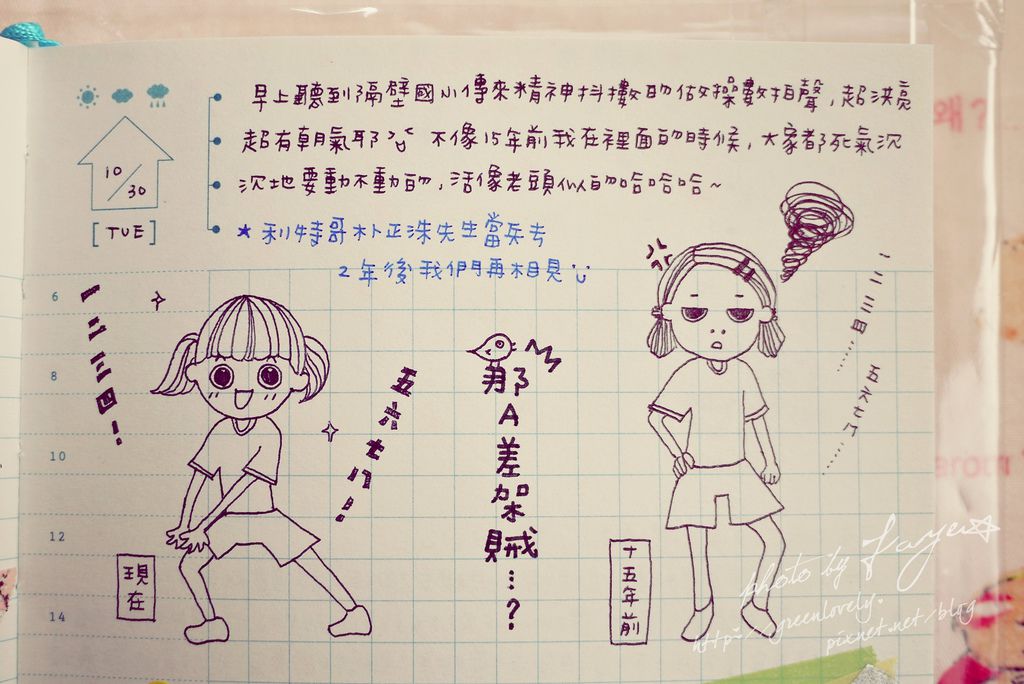 早上聽到隔壁國小傳來精神抖擻的做操數拍聲，超洪亮
超有朝氣耶 不像15年前我在裡面的時候，大家都死氣沉
沉地要動不動的，活像老頭似的哈哈哈~
10/30
[TUE]
★ 利特哥朴正洙先生當兵去
2年後我們再相見
6
8
10
12
14
一二三四！
五六七八！
那A差架賊…？
一二三四……
五六七八……
現在
十五年前
photo by Faye☆
http://greenlovely.
pixnet.net/blog
왜?